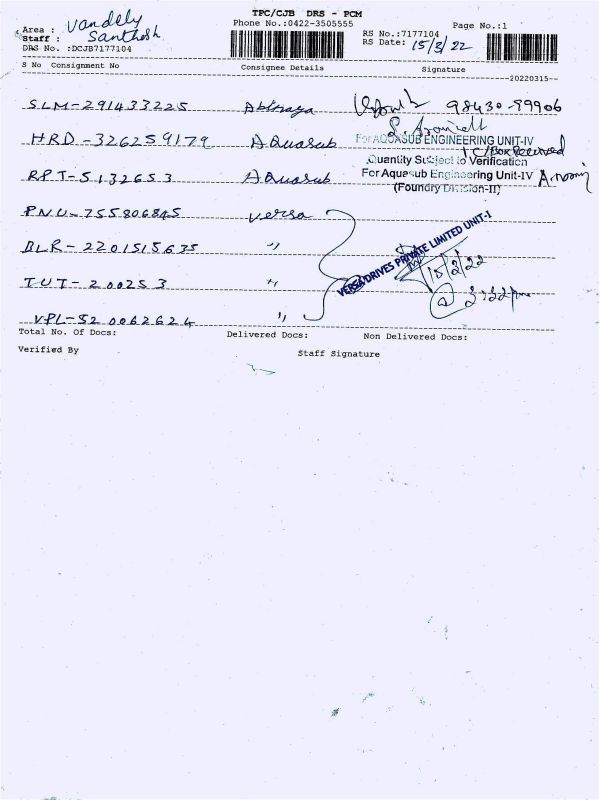 TPC/CJB DRS - PCM
Phone No.:0422-3505555
Page No.:1
Area : Vandely
Staff : Santhosh
DRS No. :DCJB7177104
RS No.:7177104
RS Date: 15/3/22
S No Consignment No Consignee Details Signature
20220315--
SLM-291433225 98430-99906
HRD-326259179 Aquasub For AQUASUB ENGINEERING UNIT-IV
1 C/Box Received
Quantity Subject to Verification
RPT-5132653 Aquasub For Aquasub Engineering Unit-IV
(Foundry Division-II)
PNU-755806845 Versa
VERSA DRIVES PRIVATE LIMITED UNIT-I
BLR-2201515635 " 15/3/22
TUT-200253 "
VPL-520062624 "
Total No. Of Docs: Delivered Docs: Non Delivered Docs:
Verified By Staff Signature